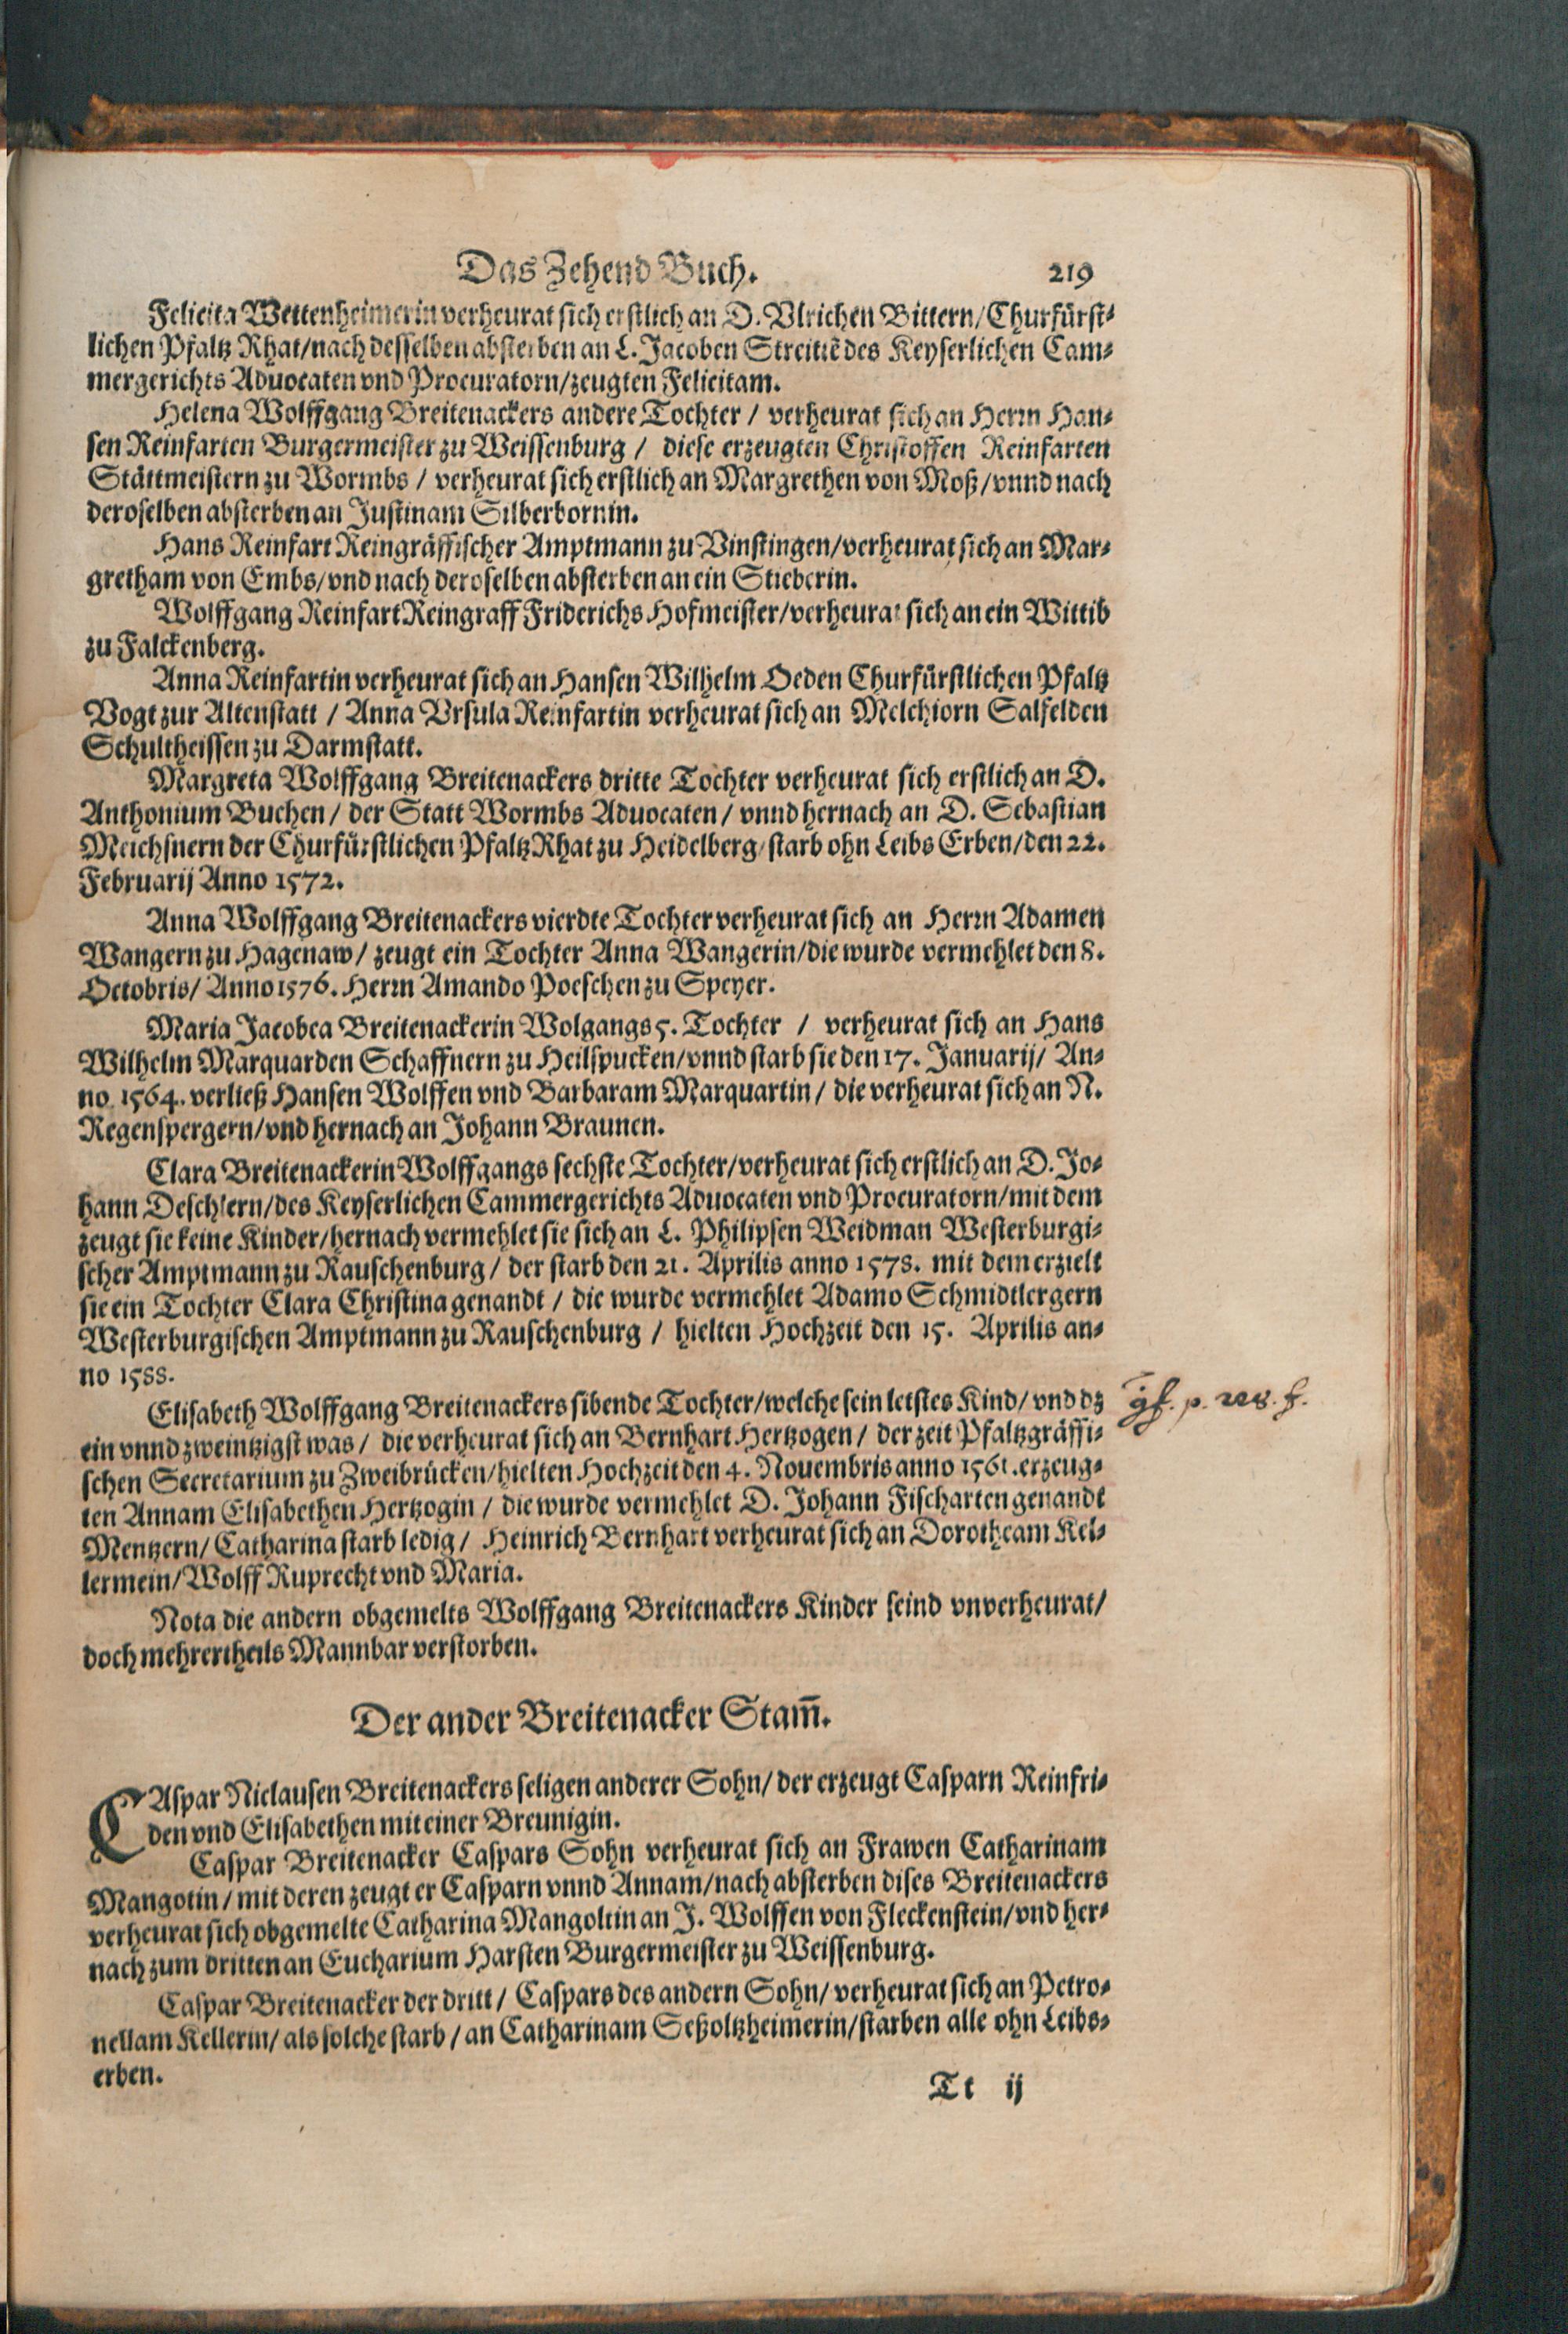 Das Zehend Buch. 219
Felicita Wettenheimerin verheurat sich erstlich an D. Vlrichen Bittern/Churfürst-
lichen Pfaltz Rhat/nach desselben absterben an L. Jacoben Streittē des Keyserlichen Cam-
mergerichts Aduocaten vnd Procuratorn/zeugten Felicitam.
Helena Wolffgang Breitenackers andere Tochter / verheurat sich an Herrn Han-
sen Reinfarten Burgermeister zu Weissenburg / diese erzeugten Christoffen Reinfarten
Stättmeistern zu Wormbs / verheurat sich erstlich an Margrethen von Moß/vnnd nach
deroselben absterben an Justinam Silberbornin.
Hans Reinfart Reingräffischer Amptmann zu Vinstingen/verheurat sich an Mar-
gretham von Embs/vnd nach deroselben absterben an ein Stieberin.
Wolffgang Reinfart Reingraff Friderichs Hofmeister/verheurat sich an ein Wittib
zu Falckenberg.
Anna Reinfartin verheurat sich an Hansen Wilhelm Oeden Churfürstlichen Pfaltz
Vogt zur Altenstatt / Anna Vrsula Reinfartin verheurat sich an Melchiorn Salfelden
Schultheissen zu Darmstatt.
Margreta Wolffgang Breitenackers dritte Tochter verheurat sich erstlich an D.
Anthonium Buchen / der Statt Wormbs Aduocaten / vnnd hernach an D. Sebastian
Meichsnern der Churfürstlichen Pfaltz Rhat zu Heidelberg/starb ohn Leibs Erben/den 22.
Februarij Anno 1572.
Anna Wolffgang Breitenackers vierdte Tochter verheurat sich an Herrn Adamen
Wangern zu Hagenaw / zeugt ein Tochter Anna Wangerin/die wurde vermehlet den 8.
Octobris/ Anno 1576. Herrn Amando Poeschen zu Speyer.
Maria Jacobea Breitenackerin Wolgangs 5. Tochter / verheurat sich an Hans
Wilhelm Marquarden Schaffnern zu Heilspucken/vnnd starb sie den 17. Januarij/ An-
no 1564. verließ Hansen Wolffen vnd Barbaram Marquartin / die verheurat sich an N.
Regenspergern/vnd hernach an Johann Braunen.
Clara Breitenackerin Wolffgangs sechste Tochter/verheurat sich erstlich an D. Jo-
hann Deschlern/des Keyserlichen Cammergerichts Aduocaten vnd Procuratorn/mit dem
zeugt sie keine Kinder/hernach vermehlet sie sich an L. Philipsen Weidman Westerburgi-
scher Amptmann zu Rauschenburg / der starb den 21. Aprilis anno 1578. mit dem erzielt
sie ein Tochter Clara Christina genandt / die wurde vermehlet Adamo Schmidtlergern
Westerburgischen Amptmann zu Rauschenburg / hielten Hochzeit den 15. Aprilis an-
no 1588.
Elisabeth Wolffgang Breitenackers sibende Tochter/welche sein letstes Kind/ vnd dz
ein vnnd zweintzigst was / die verheurat sich an Bernhart Hertzogen / der zeit Pfaltzgräffi-
schen Secretarium zu Zweibrücken/hielten Hochzeit den 4. Nouembris anno 1561. erzeug-
ten Annam Elisabethen Hertzogin / die wurde vermehlet D. Johann Fischarten genandt
Mentzern/ Catharina starb ledig / Heinrich Bernhart verheurat sich an Dorotheam Kel-
lermein/Wolff Ruprecht vnd Maria.
Nota die andern obgemelts Wolffgang Breitenackers Kinder seind vnverheurat/
doch mehrertheils Mannbar verstorben.
Der ander Breitenacker Stam̄.
CAspar Niclausen Breitenackers seligen anderer Sohn/ der erzeugt Casparn Reinfri-
den vnd Elisabethen mit einer Breunigin.
Caspar Breitenacker Caspars Sohn verheurat sich an Frawen Catharinam
Mangotin / mit deren zeugt er Casparn vnnd Annam/nach absterben dises Breitenackers
verheurat sich obgemelte Catharina Mangoltin an J. Wolffen von Fleckenstein/vnd her-
nach zum dritten an Eucharium Harsten Burgermeister zu Weissenburg.
Caspar Breitenacker der dritt / Caspars des andern Sohn/ verheurat sich an Petro-
nellam Kellerin / als solche starb / an Catharinam Seßoltzheimerin/starben alle ohn Leibs-
erben.
Tt ij